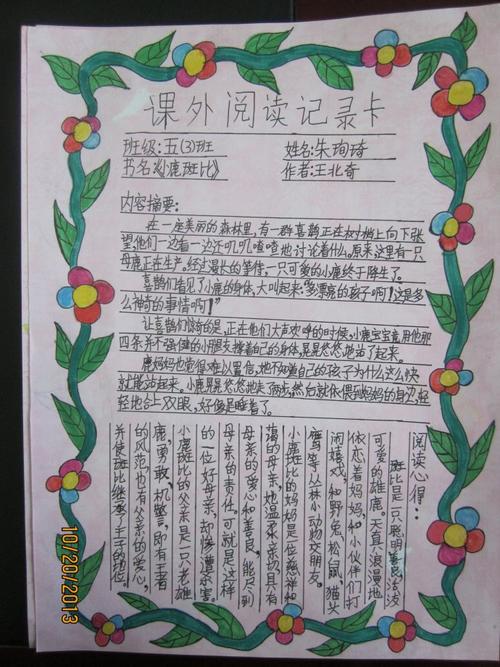 课外阅读记录卡
班级:五(3)班 姓名:朱珣琦
书名:《小鹿斑比》 作者:王北奇
内容摘要:
在一座美丽的森林里,有一群喜鹊正在树梢上向下张
望,他们一边看一边还叽叽喳喳地讨论着什么。原来,这里有一只
母鹿正在生产。经过漫长的等待,一只可爱的小鹿终于降生了。
喜鹊们看见了小鹿的身体,大叫起来:"多漂亮的孩子啊!这是多
么神奇的事情啊!"
让喜鹊们惊奇的是,正在他们大声欢呼的时候,小鹿宝宝竟用他那
四条并不强健的小腿支撑着自己的身体,晃晃悠悠地站了起来。
鹿妈妈也觉得难以置信,她不知道自己的孩子为什么这么快
就能站起来。小鹿晃晃悠悠地走了两步,然后就依偎到妈妈的身边,轻
轻地合上双眼,好像是睡着了。
阅读心得:
斑比是一只聪明善良、活泼
可爱的雄鹿。天真浪漫地
依恋着妈妈,和小伙伴们打
闹嬉戏,和野兔、松鼠、猫头
鹰等丛林小动物交朋友。
小鹿斑比的妈妈是一位慈祥和
蔼的母亲,她温柔、亲切,具有
母亲的爱心和善良,能尽到
母亲的责任。可就是这样
的一位好母亲,却惨遭杀害。
小鹿斑比的父亲是一只老雄
鹿,勇敢、机警,即有王者
的风范,也有父亲的爱心,
并使斑比继承了王子的地位。
10/20/2013